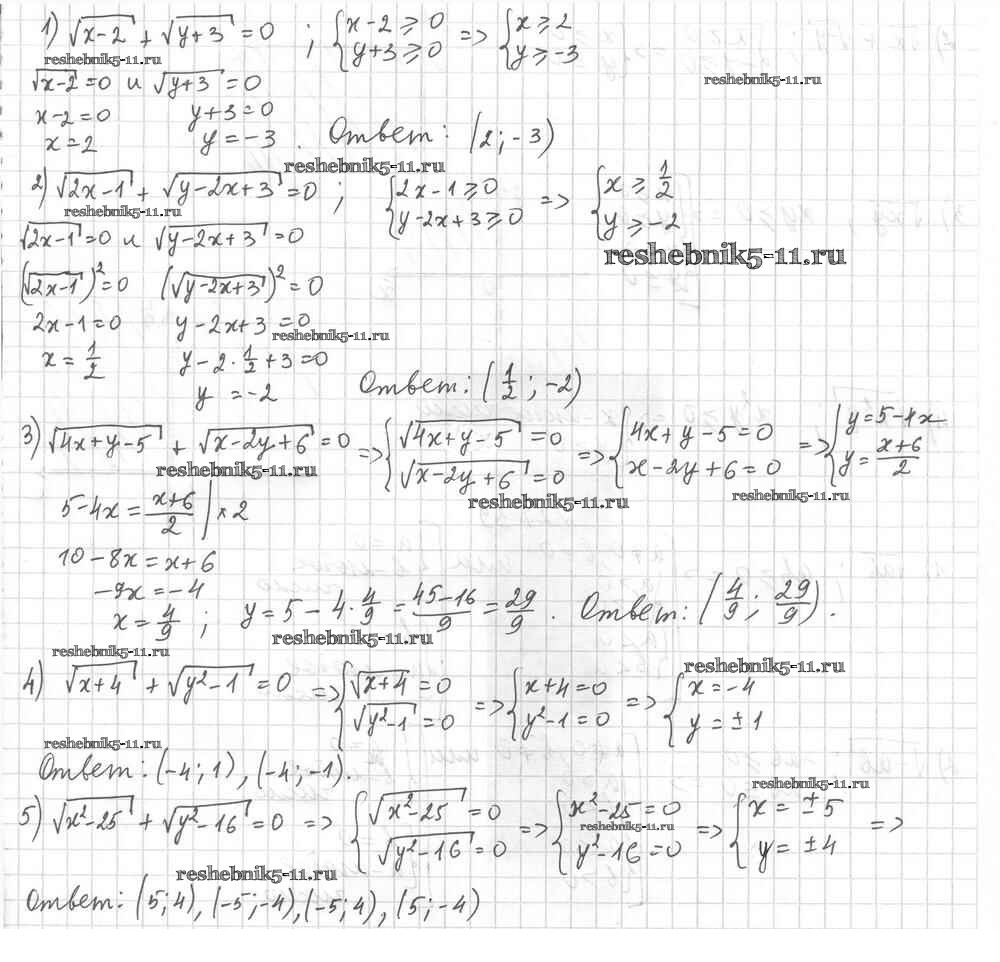 1) √(x-2) + √(y+3) = 0 ; { x-2 ≥ 0 => { x ≥ 2
y+3 ≥ 0 y ≥ -3
reshebnik5-11.ru reshebnik5-11.ru
√(x-2) = 0 и √(y+3) = 0
x-2=0 y+3=0
x=2 y=-3. Ответ: (2; -3)
reshebnik5-11.ru
2) √(2x-1) + √(y-2x+3) = 0 ; { 2x-1 ≥ 0 => { x ≥ 1/2
y-2x+3 ≥ 0 y ≥ -2
reshebnik5-11.ru
√(2x-1) = 0 и √(y-2x+3) = 0
reshebnik5-11.ru
(√(2x-1))² = 0 (√(y-2x+3))² = 0
2x-1=0 y-2x+3=0
reshebnik5-11.ru
x = 1/2 y-2·1/2+3=0
y = -2 Ответ: (1/2; -2)
3) √(4x+y-5) + √(x-2y+6) = 0 => { √(4x+y-5) = 0 => { 4x+y-5=0 => { y=5-4x
√(x-2y+6) = 0 x-2y+6=0 y=(x+6)/2
reshebnik5-11.ru reshebnik5-11.ru reshebnik5-11.ru
5-4x = (x+6)/2 | × 2
10-8x = x+6
-9x = -4
x = 4/9 ; y = 5-4·4/9 = (45-16)/9 = 29/9. Ответ: (4/9; 29/9).
reshebnik5-11.ru
reshebnik5-11.ru reshebnik5-11.ru
4) √(x+4) + √(y²-1) = 0 => { √(x+4) = 0 => { x+4=0 => { x=-4
√(y²-1) = 0 y²-1=0 y=±1
reshebnik5-11.ru
Ответ: (-4; 1), (-4; -1).
reshebnik5-11.ru
5) √(x²-25) + √(y²-16) = 0 => { √(x²-25) = 0 => { x²-25=0 => { x=±5 =>
reshebnik5-11.ru
√(y²-16) = 0 y²-16=0 y=±4
reshebnik5-11.ru
Ответ: (5; 4), (-5; -4), (-5; 4), (5; -4)